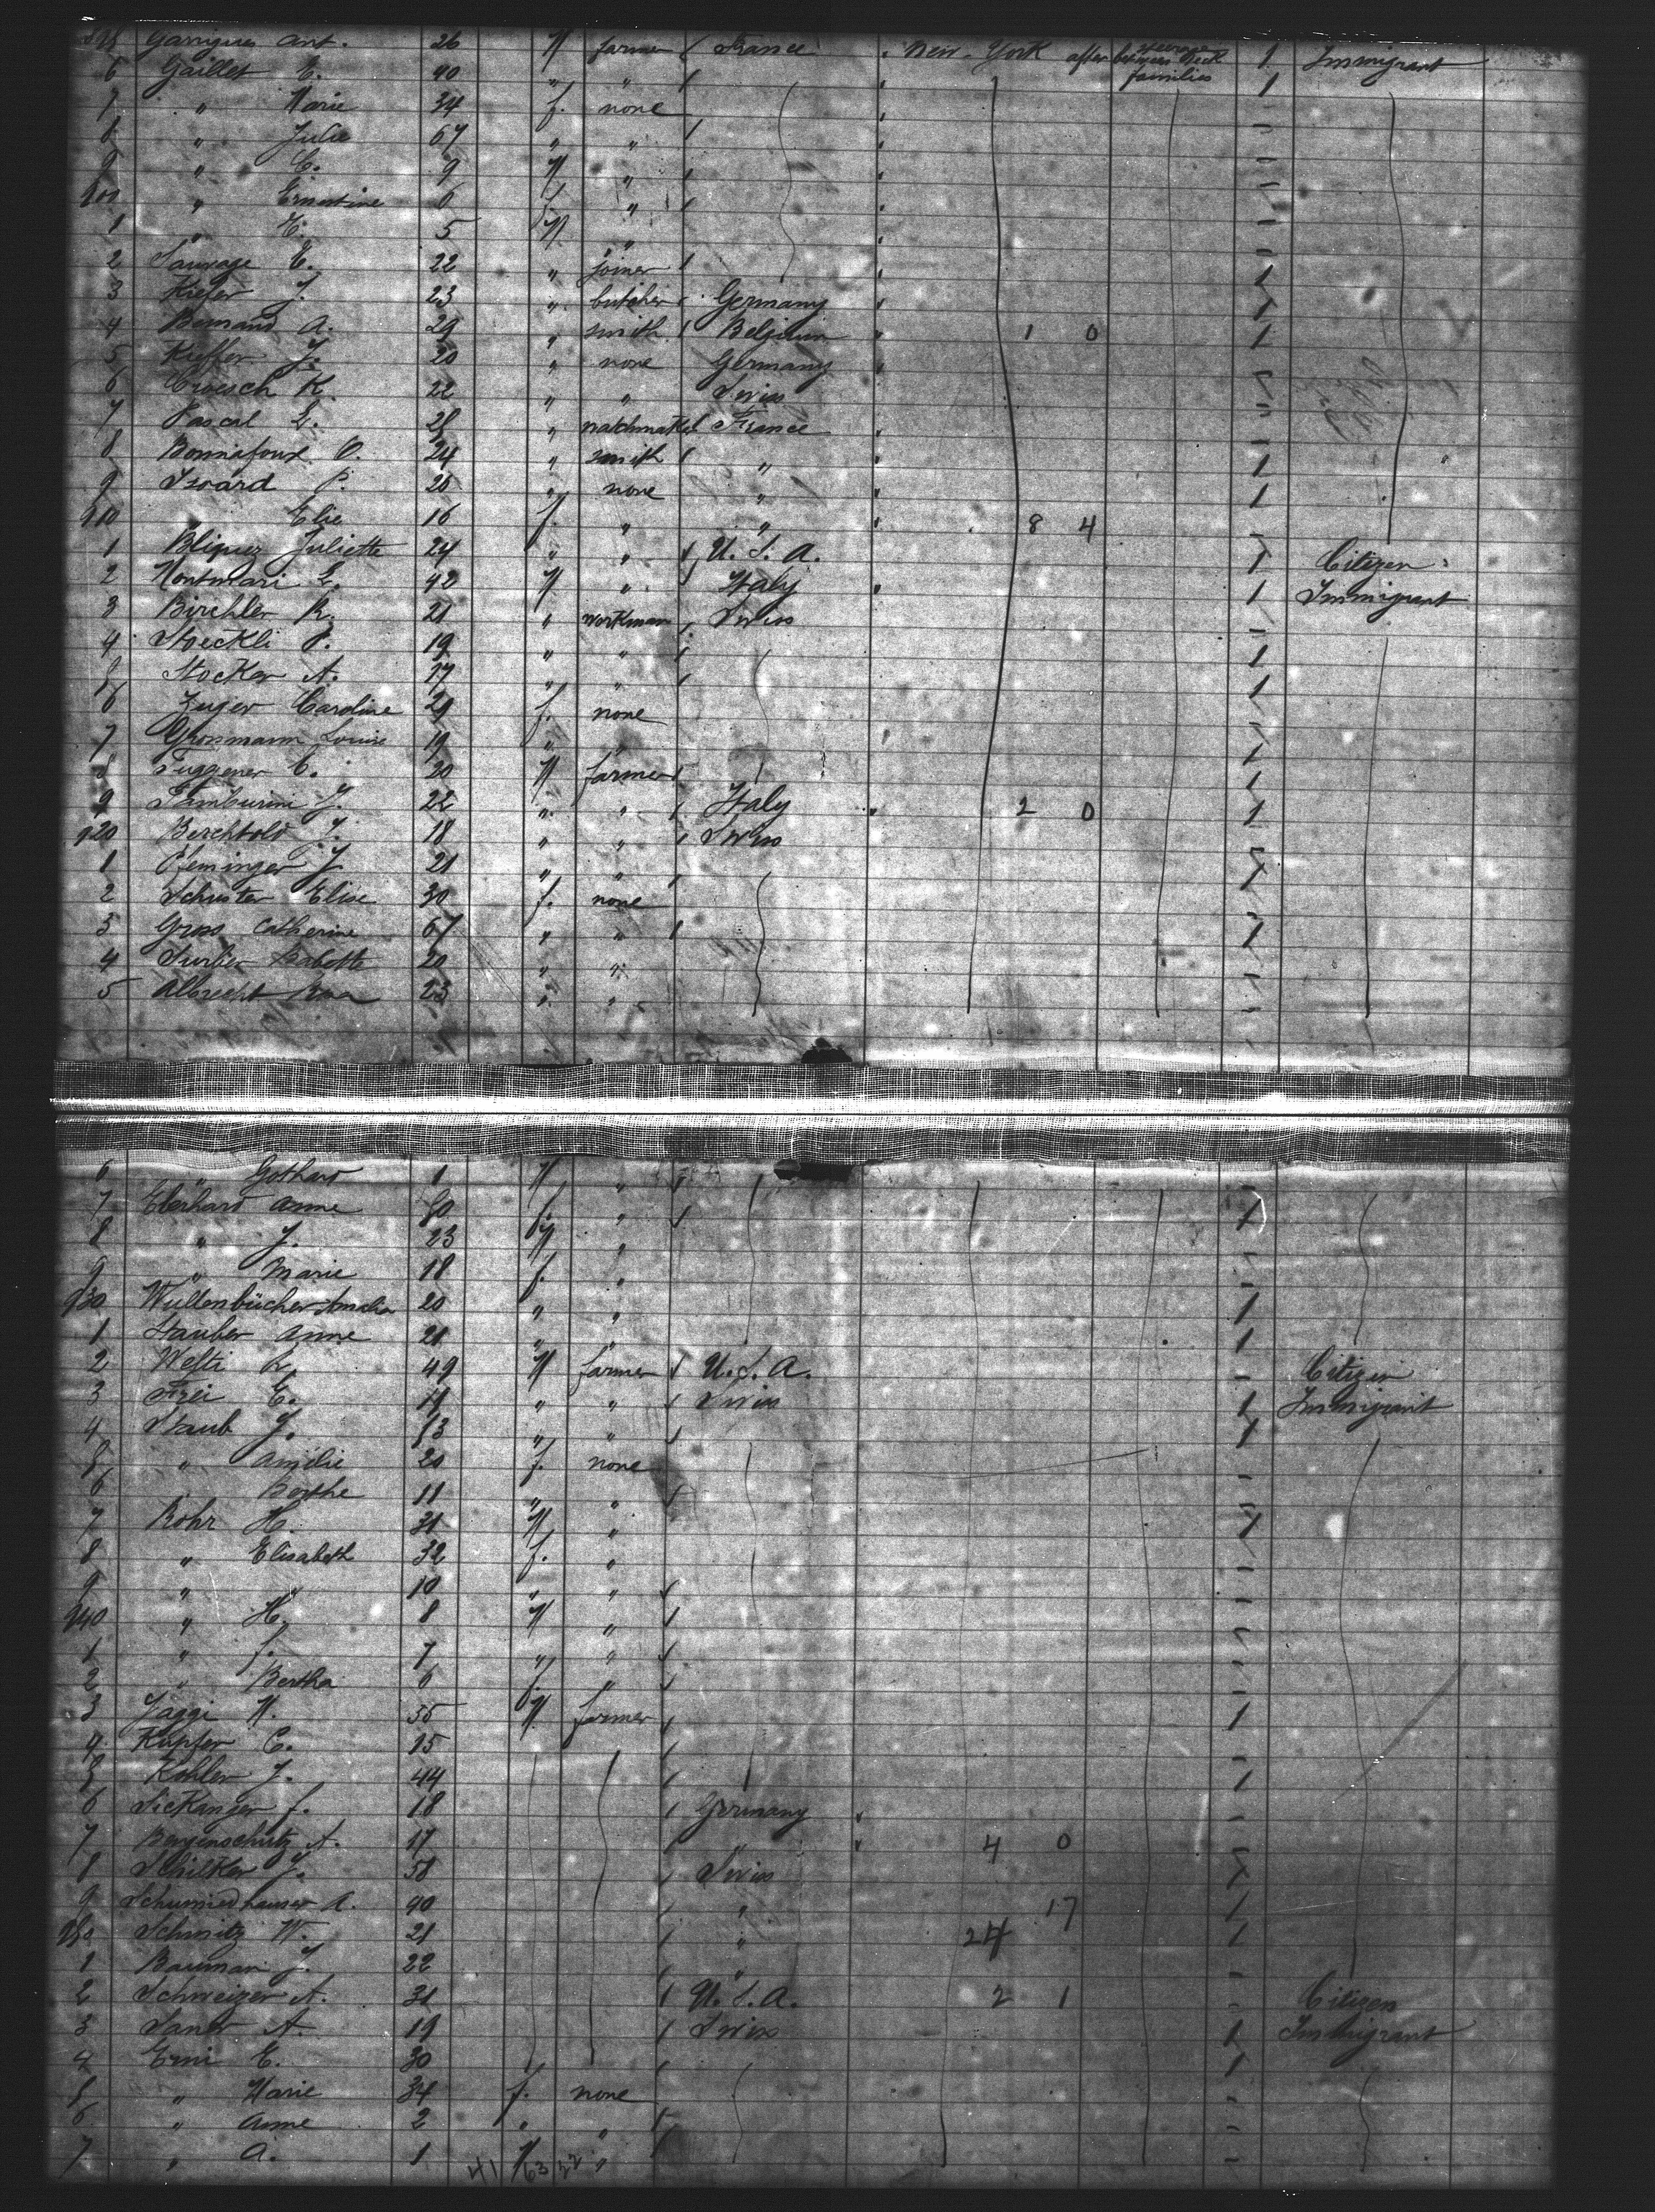 Garrigues Ant. 26 M farmer France New-York after between deck steerage families 1 Immigrant
6 Gaillet E. 40 " " 1
7 " Marie 34 f. none
8 " Julie 67 " "
9 " E. 9 M "
900 " Ernestine 6 f. "
1 " H. 5 M "
2 Sauvage E. 22 " joiner
3 Kiefer J. 23 " butcher Germany
4 A. 29 " smith Belgium 1 0
5 Kieffer J. 20 " none Germany
6 K. 22 " " Swiss
7 Pascal E. 28 " watchmaker France
8 Bonnafoux O. 24 " smith "
9 Isoard P. 20 " none "
910 Elie 16 f. " " 8 4
1 Bliquez Juliette 24 " " U. S. A. 1 Citizen
2 Montmari E. 42 M " Italy 1 Immigrant
3 Birchler R. 21 " workman Swiss
4 Stoeckli J. 19 " "
5 Stocker A. 17 " "
6 Zuger Caroline 29 f. none
7 Louise 19 " "
8 Tuggener C. 20 M farmer
9 Tamburini J. 22 " " Italy 2 0
920 Berchtold J. 18 " " Swiss
1 J. 21 " "
2 Schuster Elise 30 f. none
3 Gross Catherine 67 " "
4 Babette 20 " "
5 Albrecht Rosa 23 " "
6 " Gothard 1 M "
7 Eberhard Anne f. "
8 " J. 23 M "
9 " Marie 18 f. "
930 Wullenbücher Amalia 20 " "
1 Stauber Anne 21 " "
2 Welti R. 49 M farmer U. S. A. Citizen
3 Frei E. " " Swiss 1 Immigrant
4 Staub J. " "
5 " Amélie 20 f. none
6 Berthe 11 " "
7 Rohr H. 31 M "
8 " Elisabeth 32 f. "
9 " " 10 " "
940 " H. 8 M "
1 " f. 7 " "
2 " Bertha 6 f. "
3 Jaggi N. 55 M farmer
4 Kupfer C. 15
5 Kohler J. 44
6 f. 18 Germany
7 Bergenschutz A. 17 " 4 0
8 J. 58 Swiss
9 A. 40 " 17
950 Schmitz W. 21 " 24
1 Bauman J. 22 "
2 Schweizer A. 31 U. S. A. 2 1 Citizen
3 A. 19 Swiss 1 Immigrant
4 Erni E. 30
5 " Marie 34 f. none
6 " Anne 2 " "
7 " A. 1 M "
41 63 22